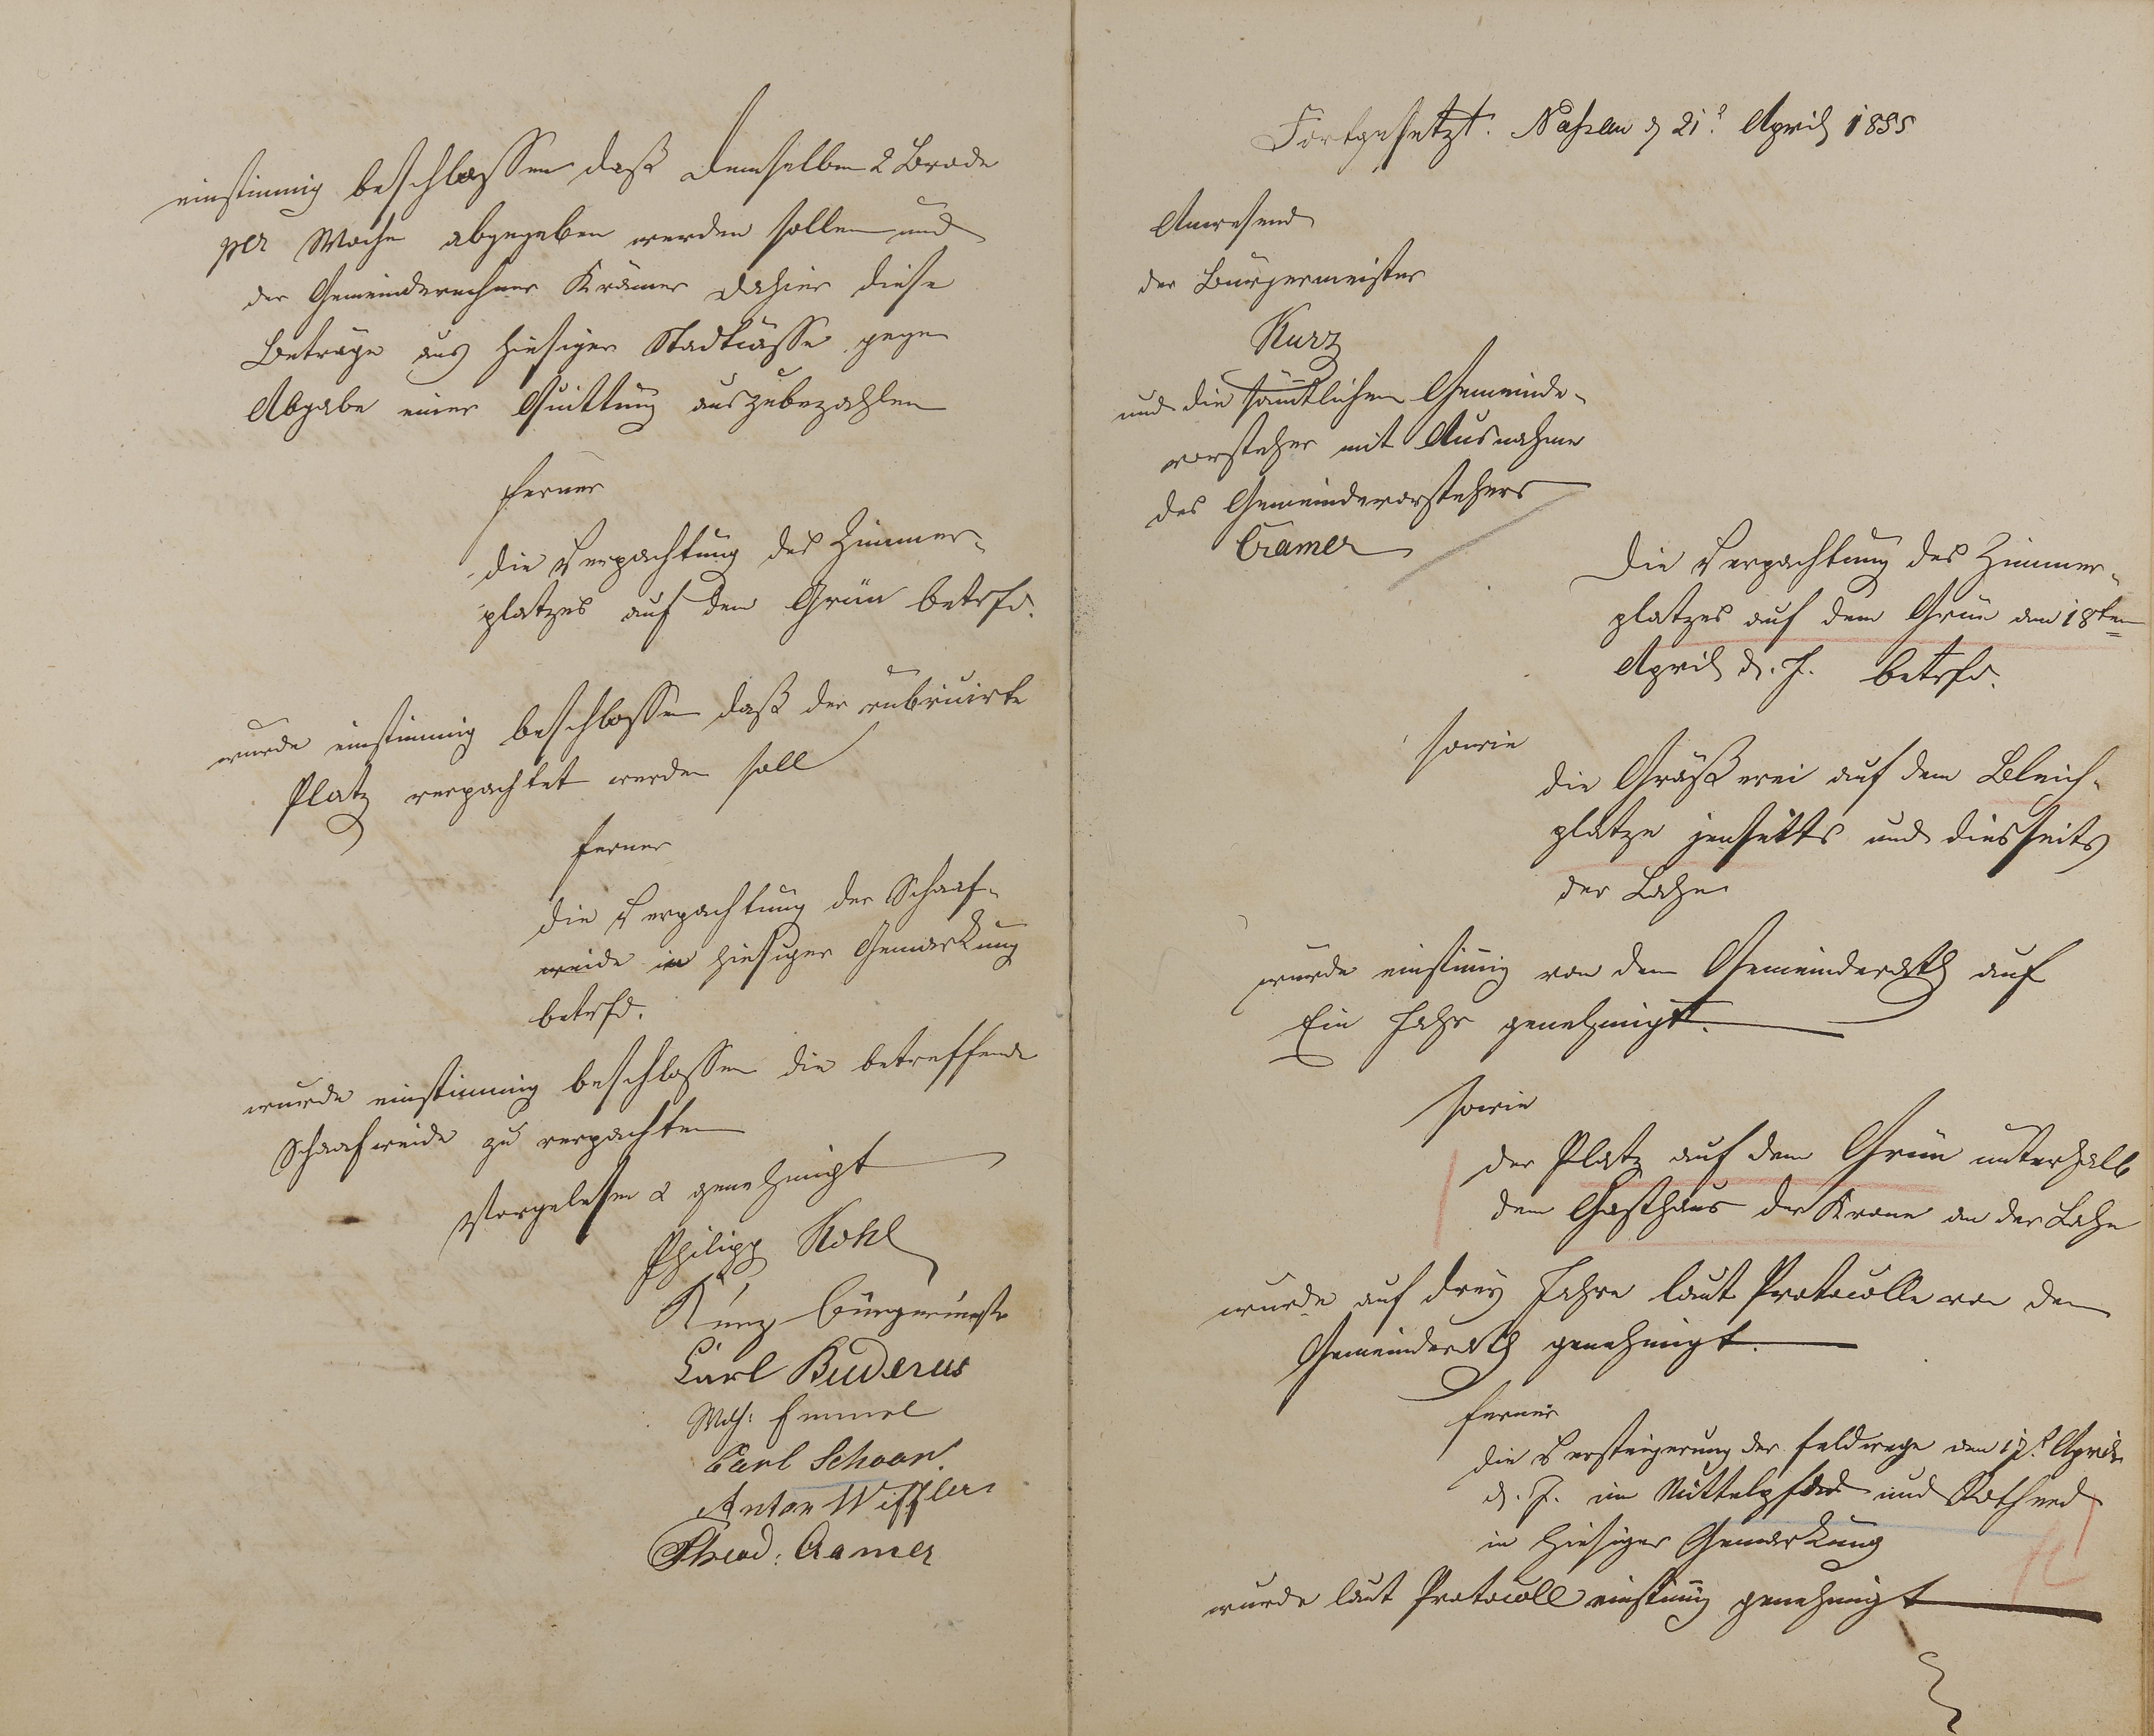 einstimmig beschlossen daß demselben 2 Brode
per Woche abgegeben werden sollen und
der Gemeinderechner Krämer dahier diese
Beträge aus hiesiger Stadtcasse gegen
Abgabe einer Quittung auszubezahlen
ferner
die Verpachtung des Zimmer-
platzes auf dem Grün betrfd.
wurde einstimmig beschlossen daß der rubricirte
Platz verpachtet werden soll
ferner
die Verpachtung der Schaaf-
weide in hiesiger Gemarkung
betrfd.
wurde einstimmig beschlossen die betreffende
Schaafweide zu verpachten
Vorgelesen & genehmigt
Philipp Kohl
Kurz Bürgermstr
Carl Buderus
Emmel
Carl Schoor.
Anton
Theod: Cramer
Fortgesetzt. Nassau d 21t April 1855
Anwesend
der Bürgermeister
Kurz
und die sämtlichen Gemeinde-
vorsteher mit Ausnahme
des Gemeindevorstehers
Cramer
Die Verpachtung des Zimmer-
platzes auf dem Grün am 18ten
April d. J. betrfd.
sowie
die Gräßerei auf dem Bleich-
platze jenseits und diesseits
der Lahn
wurde einstimig von dem Gemeinderath auf
Ein Jahr genehmigt.
sowie
der Platz auf dem Grün unterhalb
dem Gasthaus der Krone an der Lahn
wurde auf drey Jahre laut Protocolle von dem
Gemeinderath genehmigt.
ferner
die Versteigerung der Feldwege am 17t April
d. J. im Mittelpfad und
in hiesiger Gemarkung
wurde laut Protocoll einstimig genehmigt